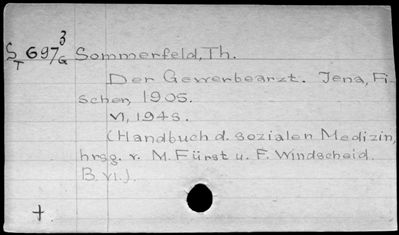 S/T 697 3/G Sommerfeld, Th.
Der Gewerbearzt. Jena, Fi-
scher, 1905.
VI, 194 S.
(Handbuch d. sozialen Medizin,
hrsg. v. M. Fürst u. F. Windscheid.
B. VI.)
+